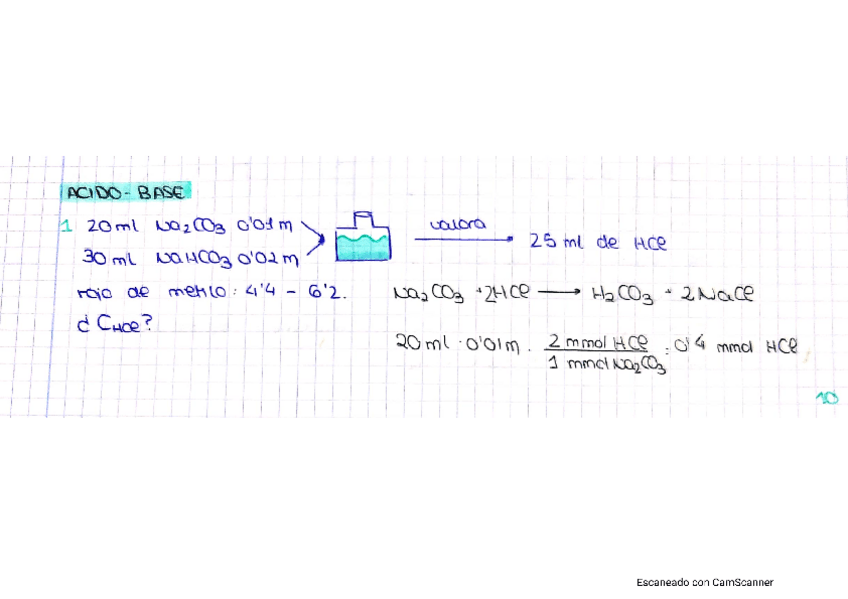 ACIDO - BASE
1 20 ml Na2CO3 0'01 m
30 ml NaHCO3 0'02 m
valora
25 ml de HCl
rojo de metilo: 4'4 - 6'2.
¿ CHCl?
Na2CO3 + 2HCl → H2CO3 + 2NaCl
20 ml · 0'01 m · 2 mmol HCl / 1 mmol Na2CO3 : 0'4 mmol HCl
10
Escaneado con CamScanner